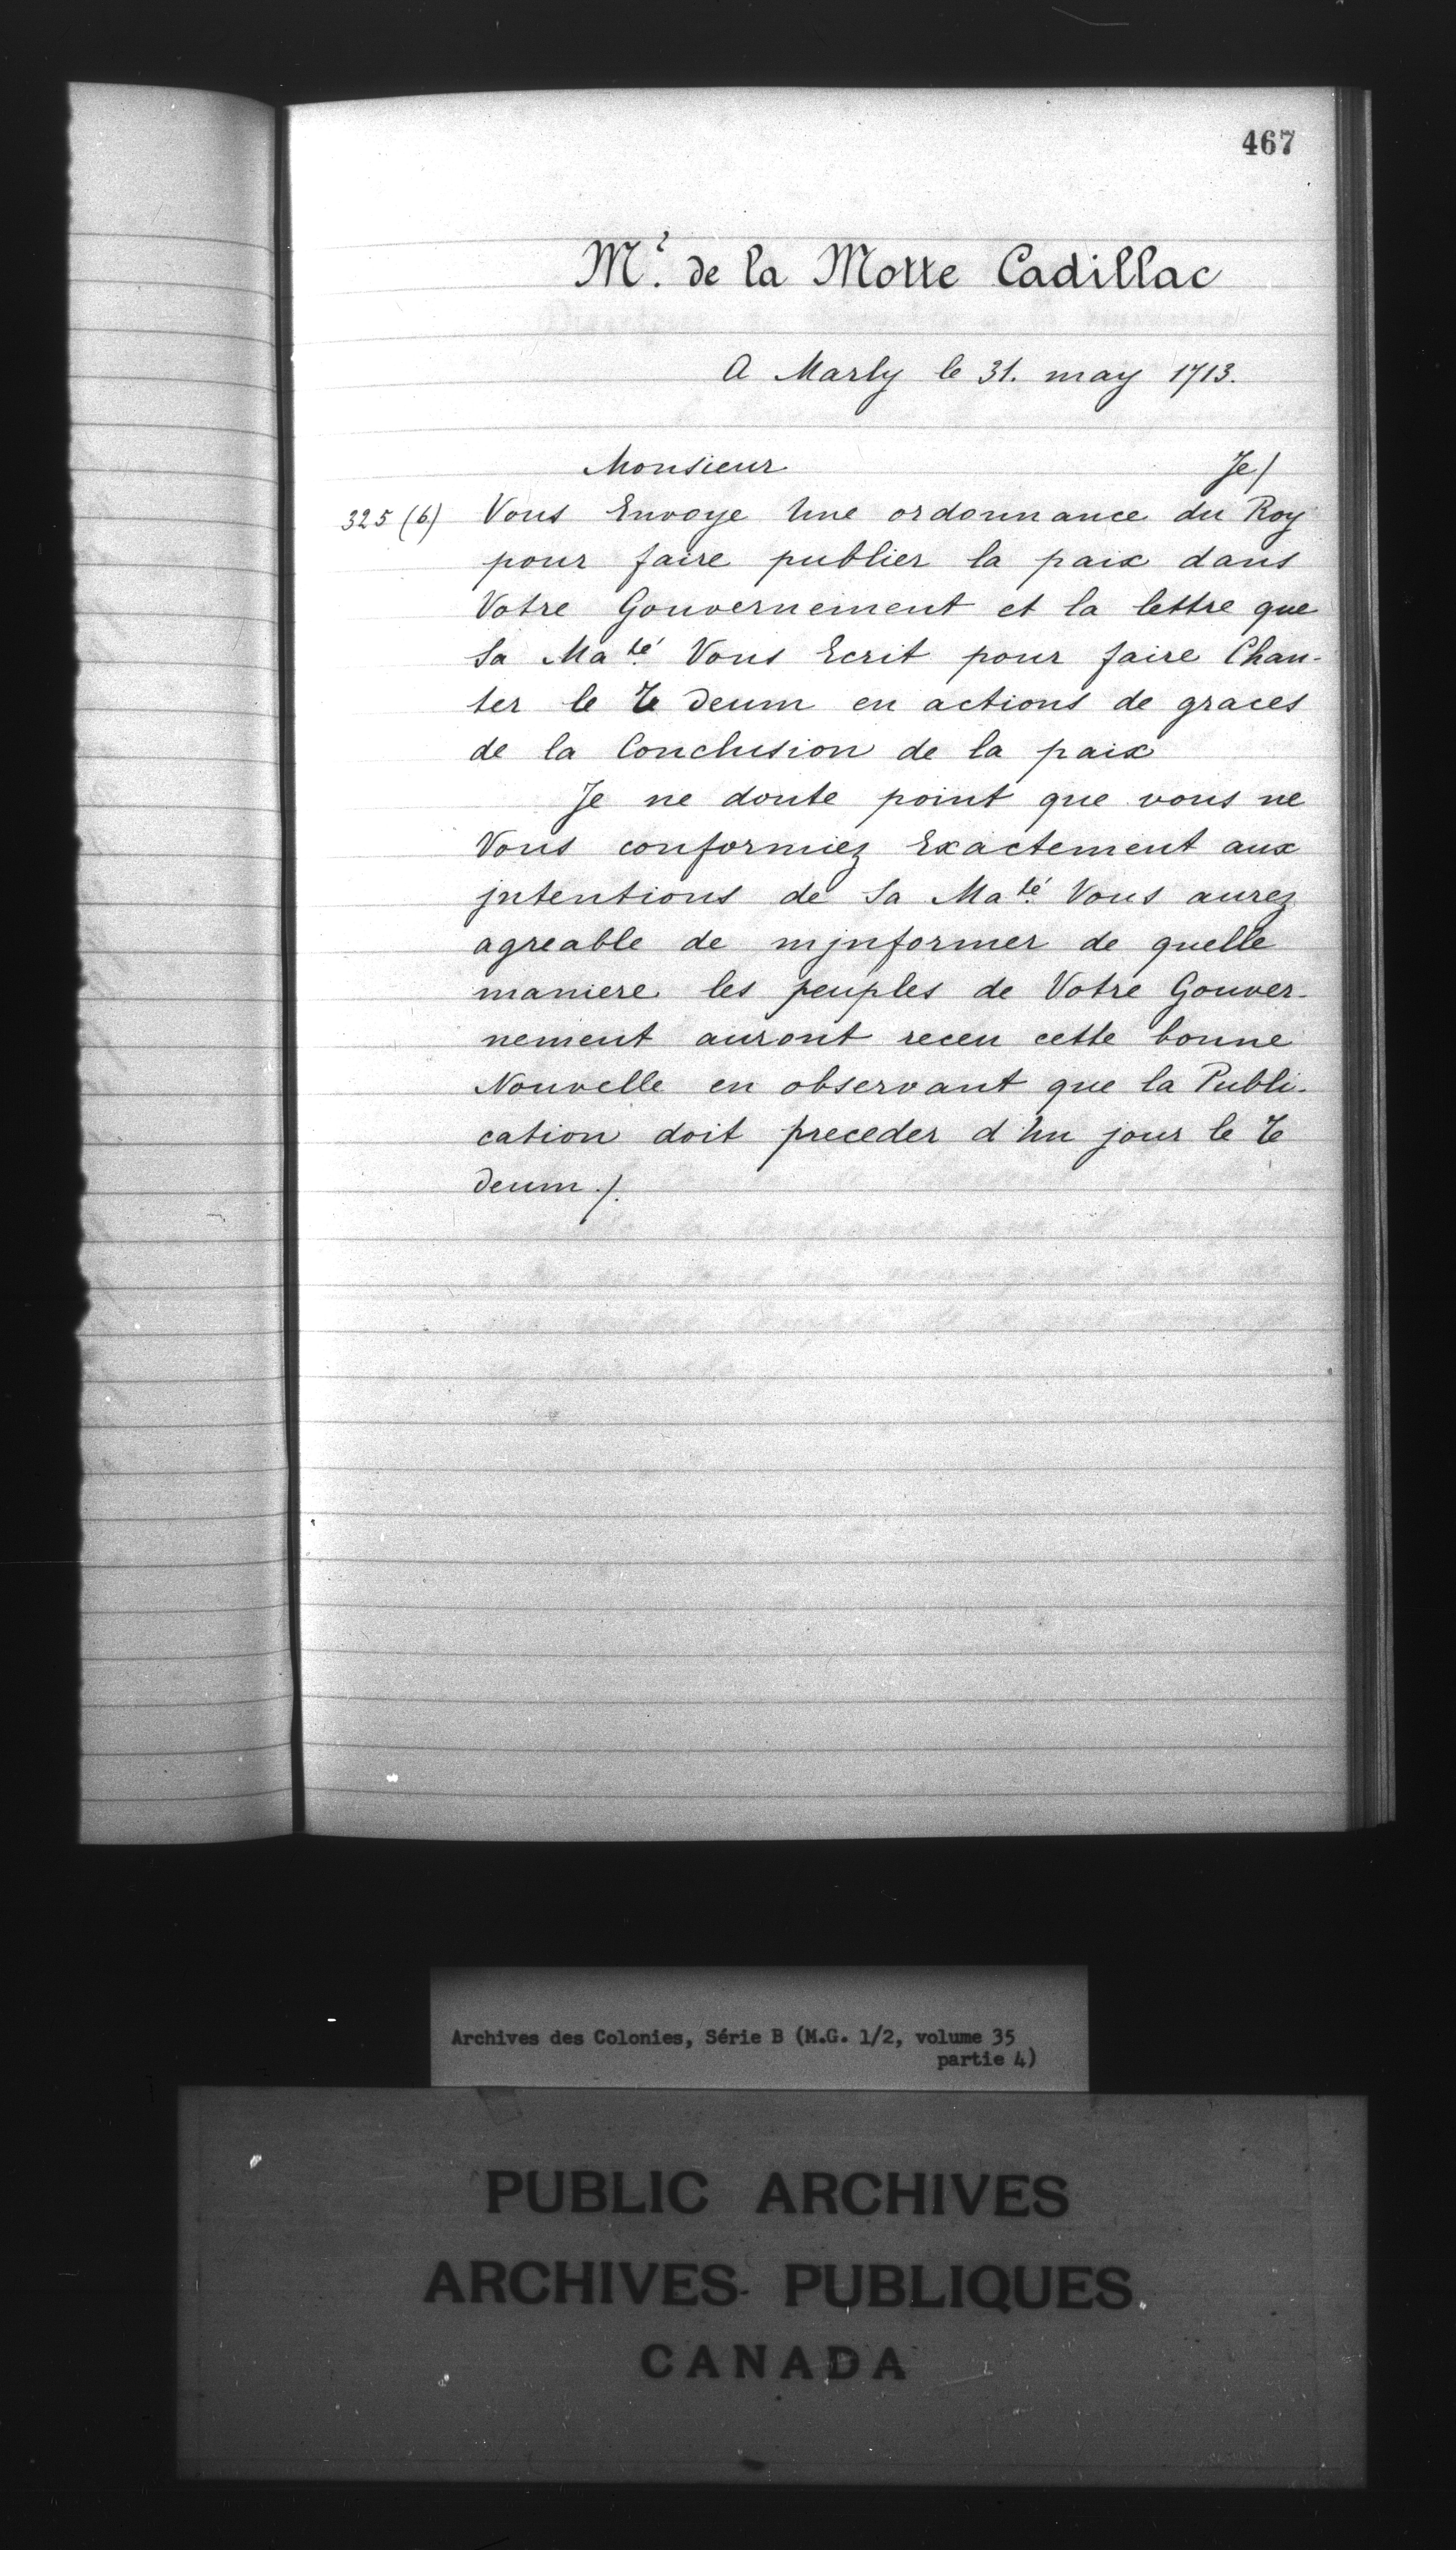 467
Mr. de la Motte Cadillac
A Marly le 31. may 1713.
Monsieur Je/
325 (6) Vous Envoye Une ordonnance du Roy
pour faire publier la paix dans
Votre Gouvernement et la lettre que
Sa Maté. Vous Ecrit pour faire Chan-
ter le Te Deum en actions de graces
de la Conclusion de la paix
Je ne doute point que vous ne
Vous conformiez Exactement aux
jntentions de Sa Maté. Vous aurez
agreable de mjnformer de quelle
maniere les peuples de Votre Gouver-
nement auront receu cette bonne
Nouvelle en observant que la Publi-
cation doit preceder d'Un jour le Te
Deum ./.
Archives des Colonies, Série B (M.G. 1/2, volume 35
partie 4)
PUBLIC ARCHIVES
ARCHIVES PUBLIQUES
CANADA